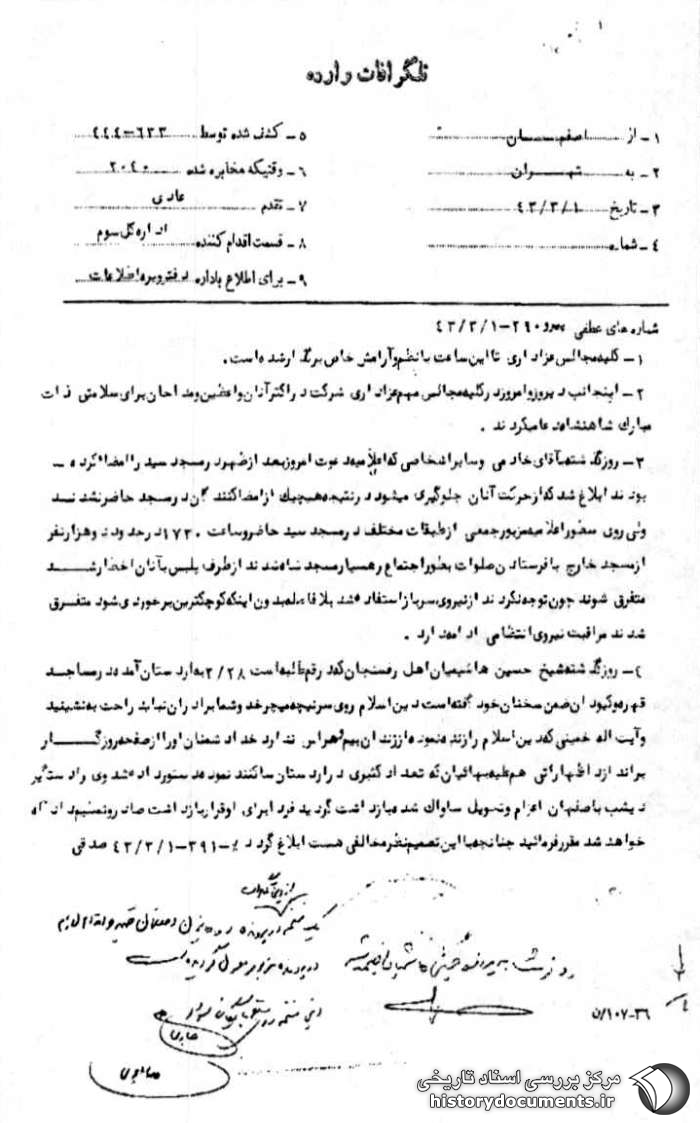 ۱
تلگرافات وارده
۱ـ از اصفهـــــان
۲ـ به تهـــران
۳ـ تاریخ ۴۳/۳/۱
۴ـ شماره
۵ـ کشف شده توسط ۶۳۳-۴۴۴
۶ـ وقتیکه مخابره شده ۲۰۴۰
۷ـ تقدم عادی
۸ـ قسمت اقدام کننده اداره کل سوم
۹ـ برای اطلاع باداره دفتر ویژه اطلاعات
شماره های عطفی ۲۹۰-۴۳/۳/۱
۱ـ کلیه مجالس عزاداری تا این ساعت با نظم و آرامش خاص برگذار شده است .
۲ـ اینجانب دیروز و امروز در کلیه مجالس مهم عزاداری شرکت در اکثر آنان واعظین و مداحان برای سلامتی ذات
مبارک شاهنشاه دعا میکردند .
۳ـ روز گذشته بآقای خادمی و سایر اشخاصی که اعلامیه دعوت امروز بعد از ظهر در مسجد سید را امضاء کرده ـ
بودند ابلاغ شد که از حرکت آنان جلوگیری میشود در نتیجه هیچیک از امضاکنندگان در مسجد حاضر نشدند
ولی روی منظور اعلامیه مزبور جمعی از طبقات مختلف در مسجد سید حاضر و ساعت ۱۷۳۰ در حدود دو هزار نفر
از مسجد خارج با فرستادن صلوات بطور اجتماع رهسپار مسجد شاه شدند از طرف پلیس بآنان اخطار شـــد
متفرق شوند چون توجه نکردند از نیروی سرباز استفاده شد بلافاصله بدون اینکه کوچکترین برخوردی شود متفـرق
شدند مراقبت نیروی انتظامی ادامه دارد .
۴ـ روز گذشته شیخ حسین هاشمیان اهل رفسنجان که در قم طلبه است ۳/۲۸ به اردستان آمده در مساجـد
قهره و کبودان ضمن سخنان خود گفته است دین اسلام روی سرنیزه میچرخد و شما برادران نباید راحت بنشینید
و آیت اله خمینی که دین اسلام را زنده نموده از زندان بیم و هراس ندارد خدا دشمنان او را از صفحه روزگـــــار
براندازد اظهاراتی هم علیه بهائیان که تعداد کثیری در اردستان ساکنند نموده دستور داده شد وی را دستگیر
دیشب باصفهان اعزام و تحویل ساواک شد بازداشت گردید فردا برای او قرار بازداشت صادر و تسلیم دادگاه
خواهد شد مقرر فرمائید چنانچه با این تصمیم نظر مخالفی هست ابلاغ گردد ۳۹۱-۴۳/۳/۱ صدقی
در پرونده مزبور معمول گردیده است
۳۶-۱۰۷/ن
مرکز بررسی اسناد تاریخی
historydocuments.ir